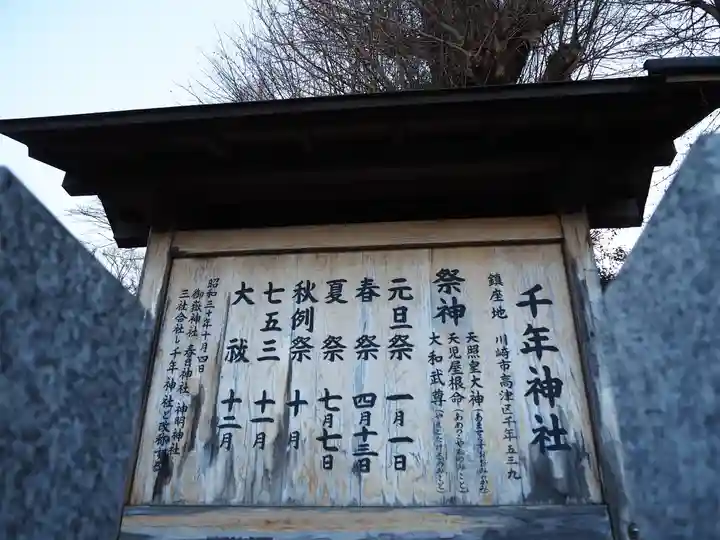 千年神社
鎮座地 川崎市高津区千年五三九
祭神 天照皇大神（あまてらすおおみかみ）
天児屋根命（あめのこやねのみこと）
大和武尊（やまとたけるのみこと）
元旦祭 一月一日
春祭 四月十三日
夏祭 七月七日
秋例祭 十月
七五三 十一月
大祓 十二月
昭和三十年十月四日
御嶽神社 春日神社 神明神社
三社合社し千年神社と改称